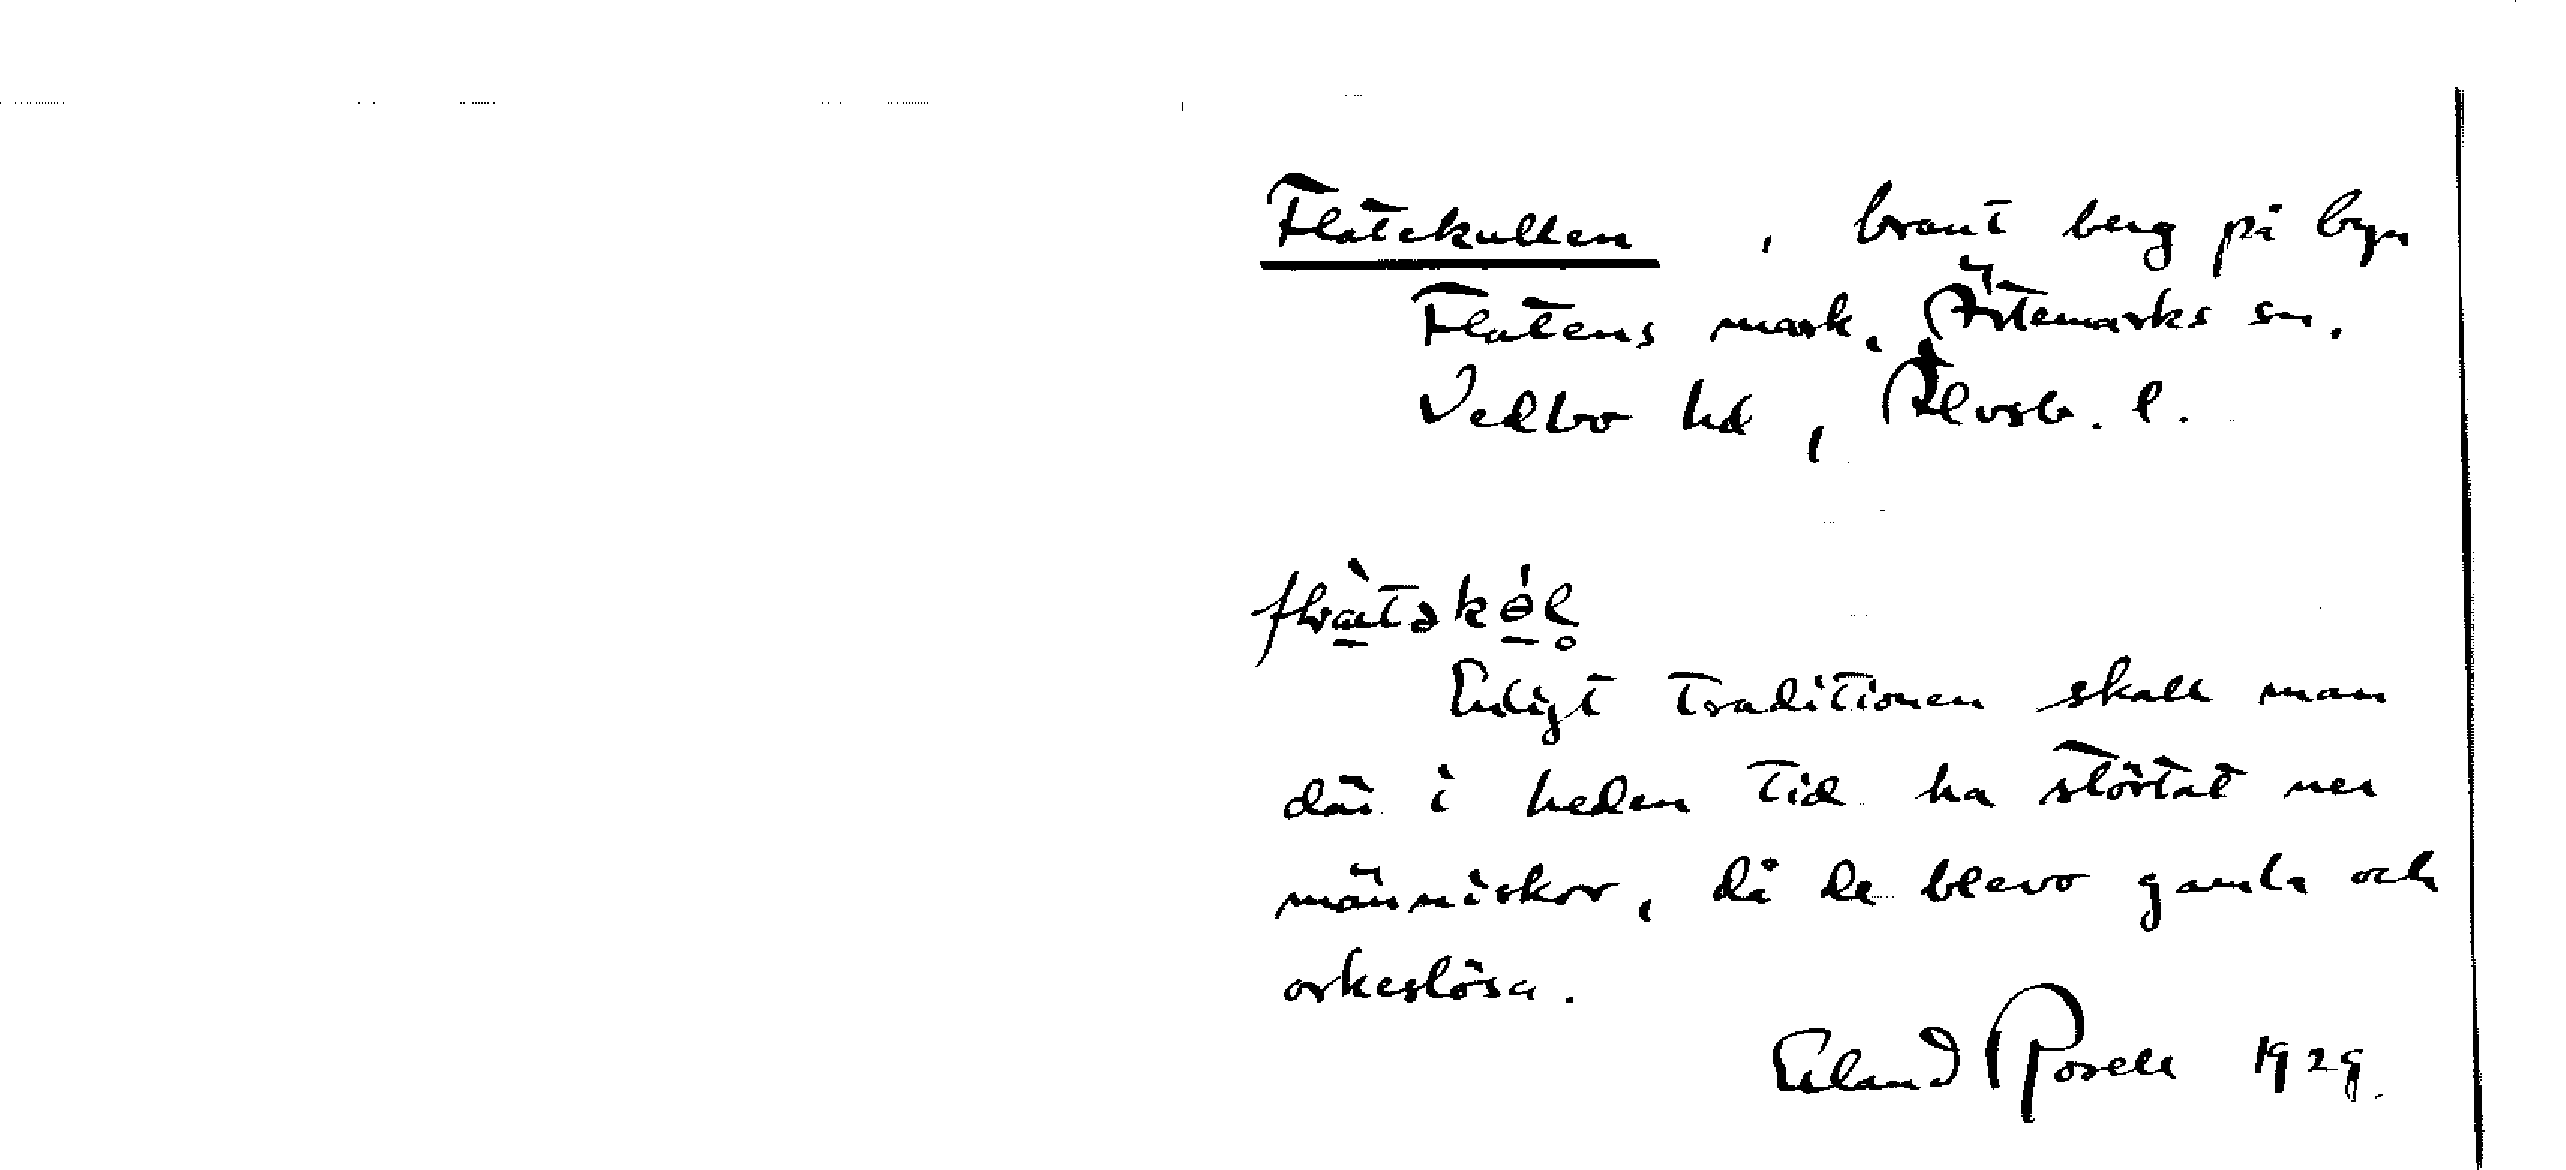 Flatekullen , brant berg på byn
Flatens mark, Ärtemarks sn,
Vedbo hd, Älvsb. l.
Enligt traditionen skall man
där i heden tid ha störtat ner
människor, då de blevo gamla och
orkeslösa.
Erland Rosell 1929.